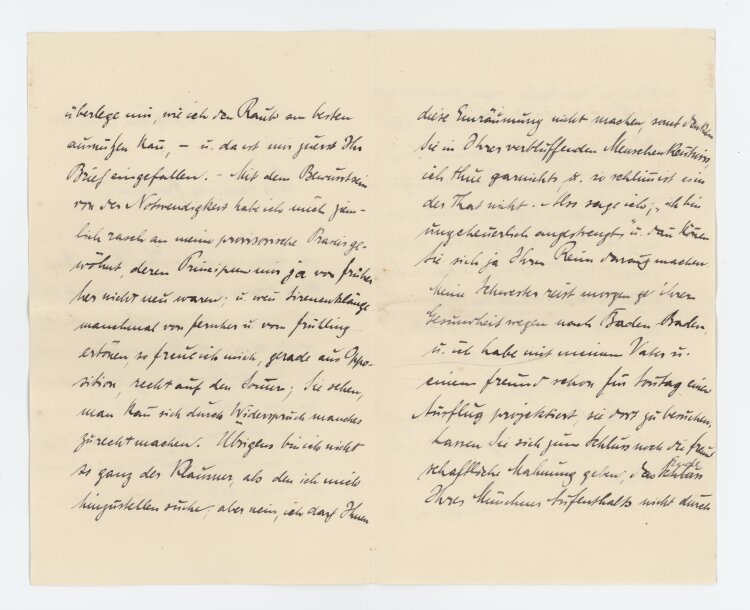 überlege mir, wie ich den Raub am besten
ausnutzen kan, – u. da ist mir zuerst Ihr
Brief eingefallen. – Mit dem Bewusstsein
von der Notwendigkeit habe ich mich ziem-
lich rasch an meine provisorische Praxis ge-
wöhnt, deren Principien mir ja von früher
her nicht neu waren; u. wen Sirenenklänge
manchmal von fernher u. vom Frühling
ertönen, so freue ich mich, gerade aus Oppo-
sition, recht auf den Somer; Sie sehen,
man kan sich durch Widerspruch manches
zurecht machen. Übrigens bin ich nicht
so ganz der Klausner, als den ich mich
hinzustellen suche; aber nein, ich darf Ihnen
diese Einräumung nicht machen, sonst denken
Sie in Ihrer verblüffenden Menschenkentniss,
ich thue garnichts, u. so schlim ist es in
der That nicht. Also sage ich: „ich bin
ungeheuerlich angestrengt" u. dan könen
Sie sich ja Ihren Reim daraus machen.
Meine Schwester reist morgen ihrer
Gesundheit wegen nach Baden Baden,
u. ich habe mit meinem Vater u.
einem Freund schon für Sontag einen
Ausflug projektiert, sie dort zu besuchen.
Lassen Sie sich zum Schluss noch die freund
schaftliche Mahnung geben, den Schluss
Ihres Münchner Aufenthalts nicht durch